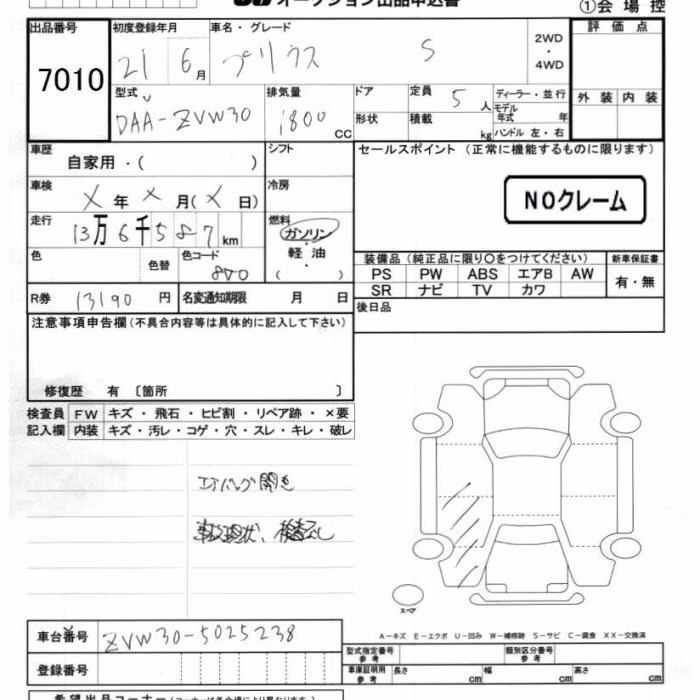 オークション出品申込書
①会 場 控
出品番号 初度登録年月 車名・グレード 評 価 点
7010 21 6月 プリウス S 2WD・4WD
外 装 内 装
型式 排気量 ドア 定員 5人 ディーラー・並行
DAA-ZVW30 1800 CC 形状 積載 kg モデル年式 年
ハンドル 左・右
車歴 自家用・( ) シフト セールスポイント (正常に機能するものに限ります)
車検 X 年 X 月(X 日) 冷房 NOクレーム
走行 13万6千587km 燃料 ガソリン・軽油 ( )
色 色替 色コード 装備品 (純正品に限り○をつけてください) 新車保証書
PS PW ABS エアB AW 有・無
SR ナビ TV カワ
R券 13190 円 名変通知期限 月 日 後日品
注意事項申告欄(不具合内容等は具体的に記入して下さい)
修復歴 有 〔箇所 〕
検査員 FW キズ・飛石・ヒビ割・リペア跡・×要
記入欄 内装 キズ・汚レ・コゲ・穴・スレ・キレ・破レ
エアバッグ開き
事故現状、検査なし
スペア
A-キズ E-エクボ U-凹み W-補修跡 S-サビ C-腐食 XX-交換済
車台番号 ZVW30-5025238
型式指定番号 参考 類別区分番号 参考
登録番号 車庫証明用 参考 長さ cm 幅 cm 高さ cm
希望出品コーナー